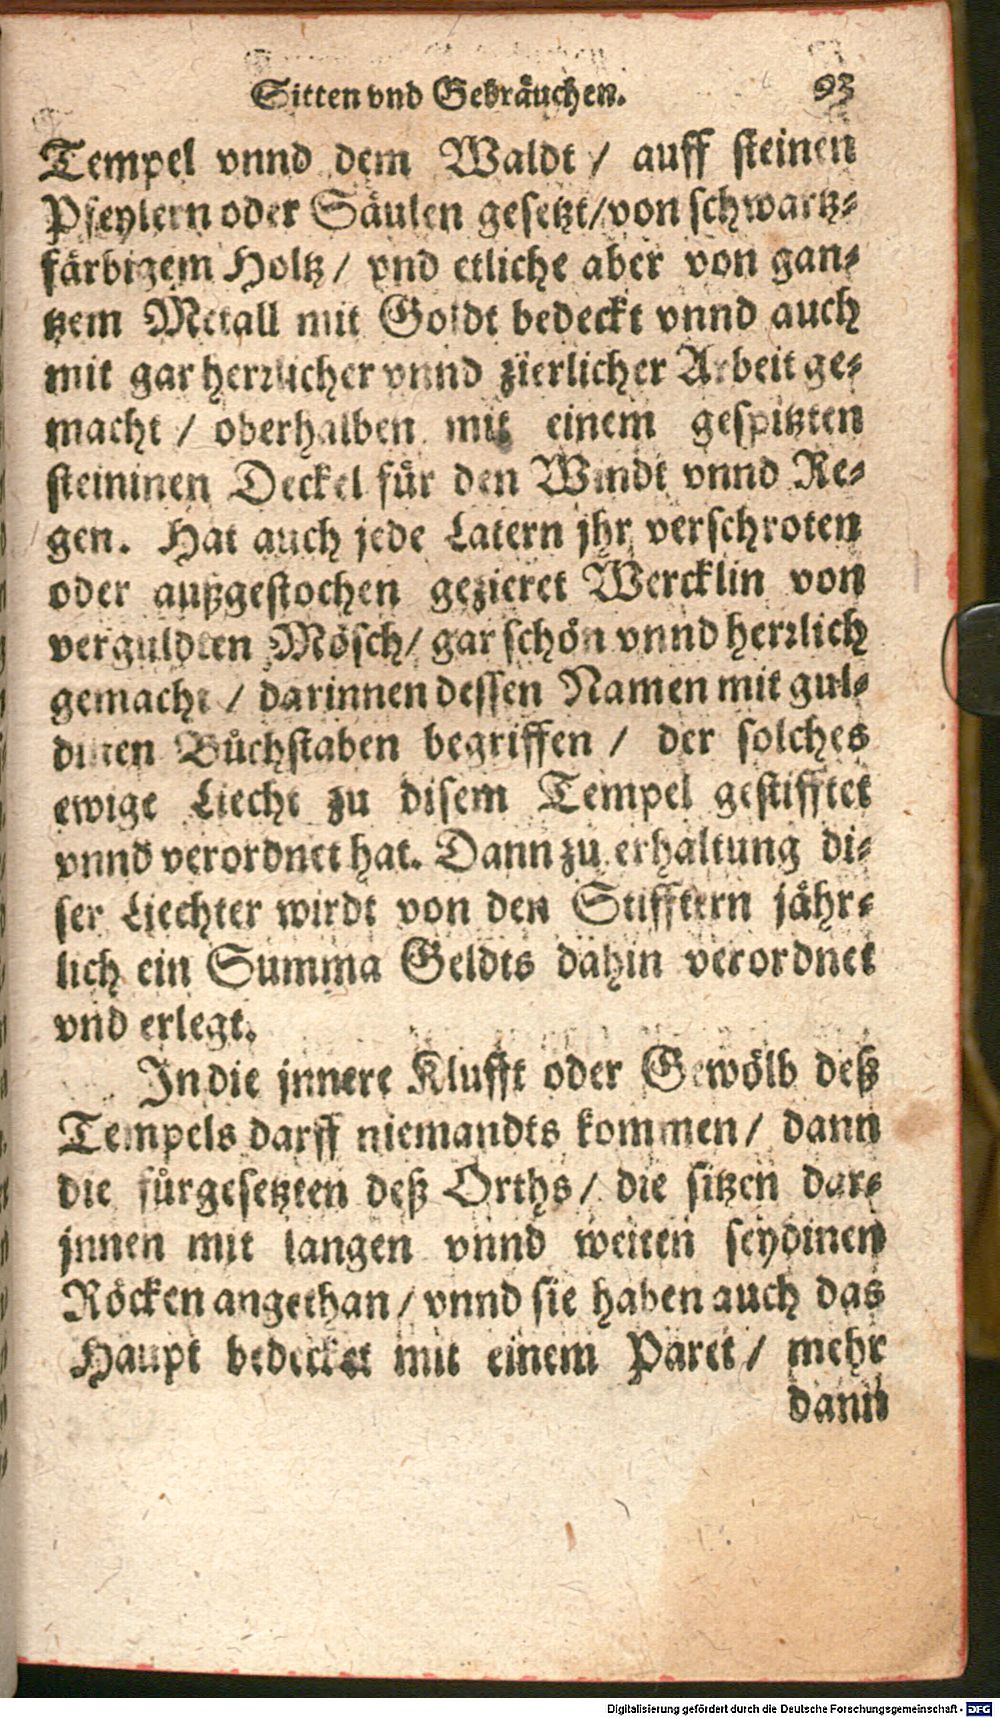 Sitten vnd Gebräuchen. 93
Tempel vnnd dem Waldt / auff steinen
Pfeylern oder Säulen gesetzt / von schwartz-
färbigem Holtz / vnd etliche aber von gan-
tzem Metall mit Goldt bedeckt vnnd auch
mit gar herrlicher vnnd zierlicher Arbeit ge-
macht / oberhalben mit einem gespitzten
steininen Deckel für den Windt vnnd Re-
gen. Hat auch jede Latern jhr verschroten
oder außgestochen gezieret Wercklin von
verguldten Mösch / gar schön vnnd herrlich
gemacht / darinnen dessen Namen mit gul-
dinen Bůchstaben begriffen / der solches
ewige Liecht zu disem Tempel gestifftet
vnnd verordnet hat. Dann zu erhaltung di-
ser Liechter wirdt von den Stifftern jähr-
lich ein Summa Geldts dahin verordnet
vnd erlegt.
In die jnnere Klufft oder Gewölb deß
Tempels darff niemandts kommen / dann
die fürgesetzten deß Orths / die sitzen dar-
jnnen mit langen vnnd weiten seydinen
Röcken angethan / vnnd sie haben auch das
Haupt bedecket mit einem Paret / mehr
dann
Digitalisierung gefördert durch die Deutsche Forschungsgemeinschaft - DFG